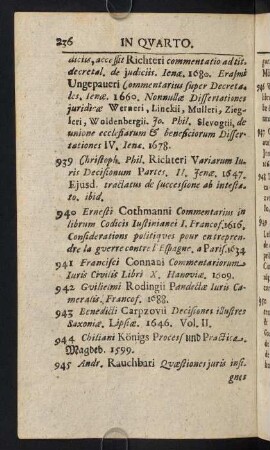 236 IN QVARTO.
diciis, accessit Richteri commentatio ad tit.
decretal. de judiciis. Ienæ. 1680. Erasmi
Ungepaueri Commentarius super Decreta-
les. Ienæ. 1660. Nonnullæ Dissertationes
juridicæ Werneri, Linckii, Mulleri, Zieg-
leri, Woldenbergii. Jo. Phil. Slevogtii, de
unione ecclesiarum & beneficiorum Disser-
tationes IV. Iena. 1678.
939 Christoph. Phil. Richteri Variarum Iu-
ris Decisionum Partes. II. Jenæ. 1647.
Ejusd. tractatus de successione ab intesta-
to. ibid.
940 Ernesti Cothmanni Commentarius in
librum Codicis Iustinianei I. Francof. 1616.
Considerations politiques pour entrepren-
dre la guerre contre l'Espagne. a Paris. 1634
941 Francisci Connani Commentariorum
Iuris Civilis Libri X. Hanoviæ. 1609.
942 Guilielmi Rodingii Pandectæ Iuris Ca-
meralis. Francof. 1688.
943 Benedicti Carpzovii Decisiones illustres
Saxoniæ. Lipsiæ. 1646. Vol. II.
944 Chiliani Königs Process und Practica.
Magdeb. 1599.
945 Andr. Rauchbari Quæstiones juris insi-
gnes